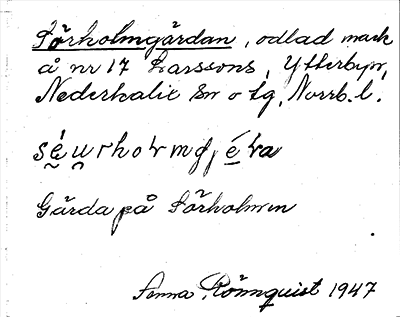 Sörholmgärdan, odlad mark
å nr 17 Larssons, Ytterbyn,
Nederkalix sn o tg, Norrb. l.
Gärda på Sörholmen
Sanna Rönnquist 1947